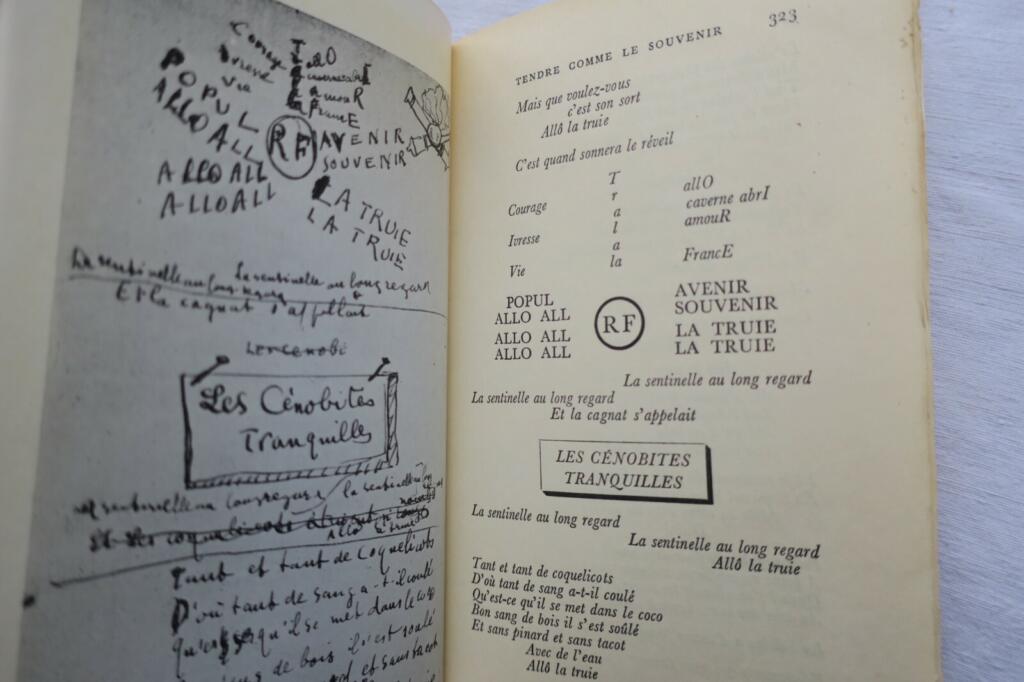 Courage
Ivresse
Vie
T allO
r caverne abrI
a amouR
la FrancE
POPUL
ALLO ALL
ALLO ALL
ALLO ALL
RF
AVENIR
SOUVENIR
LA TRUIE
LA TRUIE
La sentinelle au long regard
La sentinelle au long regard
Et la cagnat s'appelait
Les Cénobites
Tranquilles
La sentinelle au long regard la sentinelle au long
Allo la truie
Tant et tant de coquelicots
D'où tant de sang a-t-il coulé
Qu'est-ce qu'il se met dans le coco
de bois il s'est soulé
et sans tacot
TENDRE COMME LE SOUVENIR 323
Mais que voulez-vous
c'est son sort
Allô la truie
C'est quand sonnera le réveil
T allO
Courage r caverne abrI
a amouR
Ivresse l
a FrancE
Vie la
POPUL
ALLO ALL
ALLO ALL
ALLO ALL
RF
AVENIR
SOUVENIR
LA TRUIE
LA TRUIE
La sentinelle au long regard
La sentinelle au long regard
Et la cagnat s'appelait
LES CÉNOBITES
TRANQUILLES
La sentinelle au long regard
La sentinelle au long regard
Allô la truie
Tant et tant de coquelicots
D'où tant de sang a-t-il coulé
Qu'est-ce qu'il se met dans le coco
Bon sang de bois il s'est soûlé
Et sans pinard et sans tacot
Avec de l'eau
Allô la truie